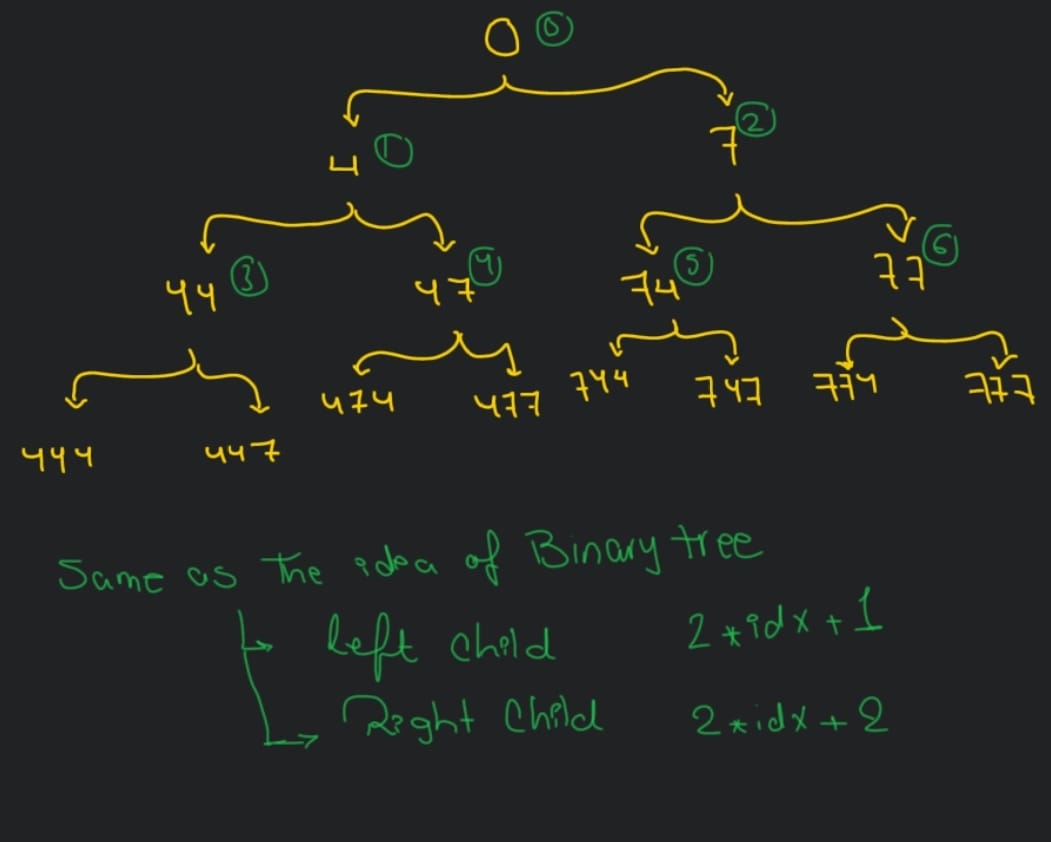 0 ⓪
4 ① 7 ②
44 ③ 47 ④ 74 ⑤ 77 ⑥
444 447 474 477 744 747 774 777
Same as The idea of Binary tree
left child 2*idx+1
Right Child 2*idx+2